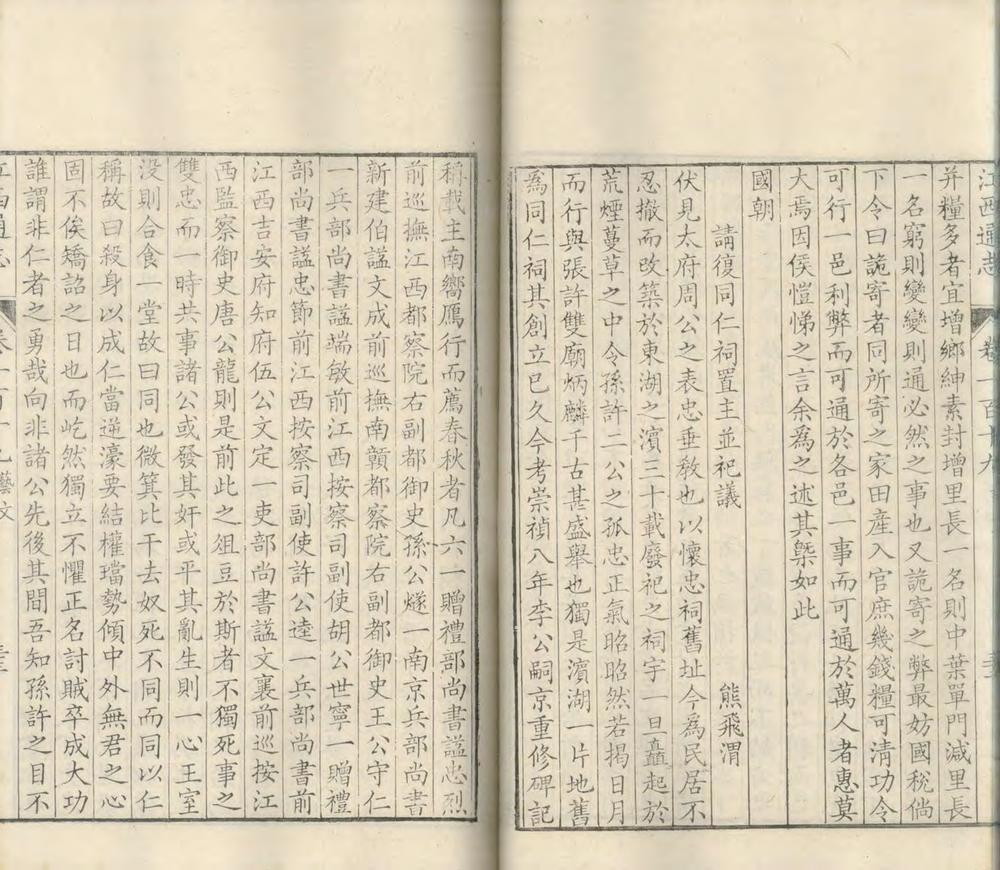 江西通志 卷一百十九
并糧多者宜增鄉紳素封增里長一名則中葉單門減里長
一名窮則變變則通必然之事也又詭寄之弊最妨國稅倘
下令曰詭寄者同所寄之家田產入官庶幾錢糧可清功令
可行一邑利弊而可通於各邑一事而可通於萬人者惠莫
大焉因侯愷悌之言余為之述其槩如此
國朝
請復同仁祠置主並祀議 熊飛渭
伏見太府周公之表忠垂敎也以懷忠祠舊址今為民居不
忍撤而改築於東湖之濵三十載廢祀之祠宇一旦矗起於
荒煙蔓草之中令孫許二公之孤忠正氣昭昭然若揭日月
而行與張許雙廟炳麟千古甚盛舉也獨是濵湖一片地舊
為同仁祠其創立已久今考崇禎八年李公嗣京重修碑記
稱載主南嚮鴈行而薦春秋者凡六一贈禮部尚書諡忠烈
前巡撫江西都察院右副都御史孫公燧一南京兵部尚書
新建伯諡文成前巡撫南贛都察院右副都御史王公守仁
一兵部尚書諡端敏前江西按察司副使胡公世寧一贈禮
部尚書諡忠節前江西按察司副使許公逵一兵部尚書前
江西吉安府知府伍公文定一吏部尚書諡文襄前巡按江
西監察御史唐公龍則是前此之俎豆於斯者不獨死事之
雙忠而一時共事諸公或發其奸或平其亂生則一心王室
没則合食一堂故曰同也微箕比干去奴死不同而同以仁
稱故曰殺身以成仁當逆濠要結權璫勢傾中外無君之心
固不俟矯詔之日也而屹然獨立不懼正名討賊卒成大功
誰謂非仁者之勇哉向非諸公先後其間吾知孫許之目不
江西通志 卷一百十九 藝文